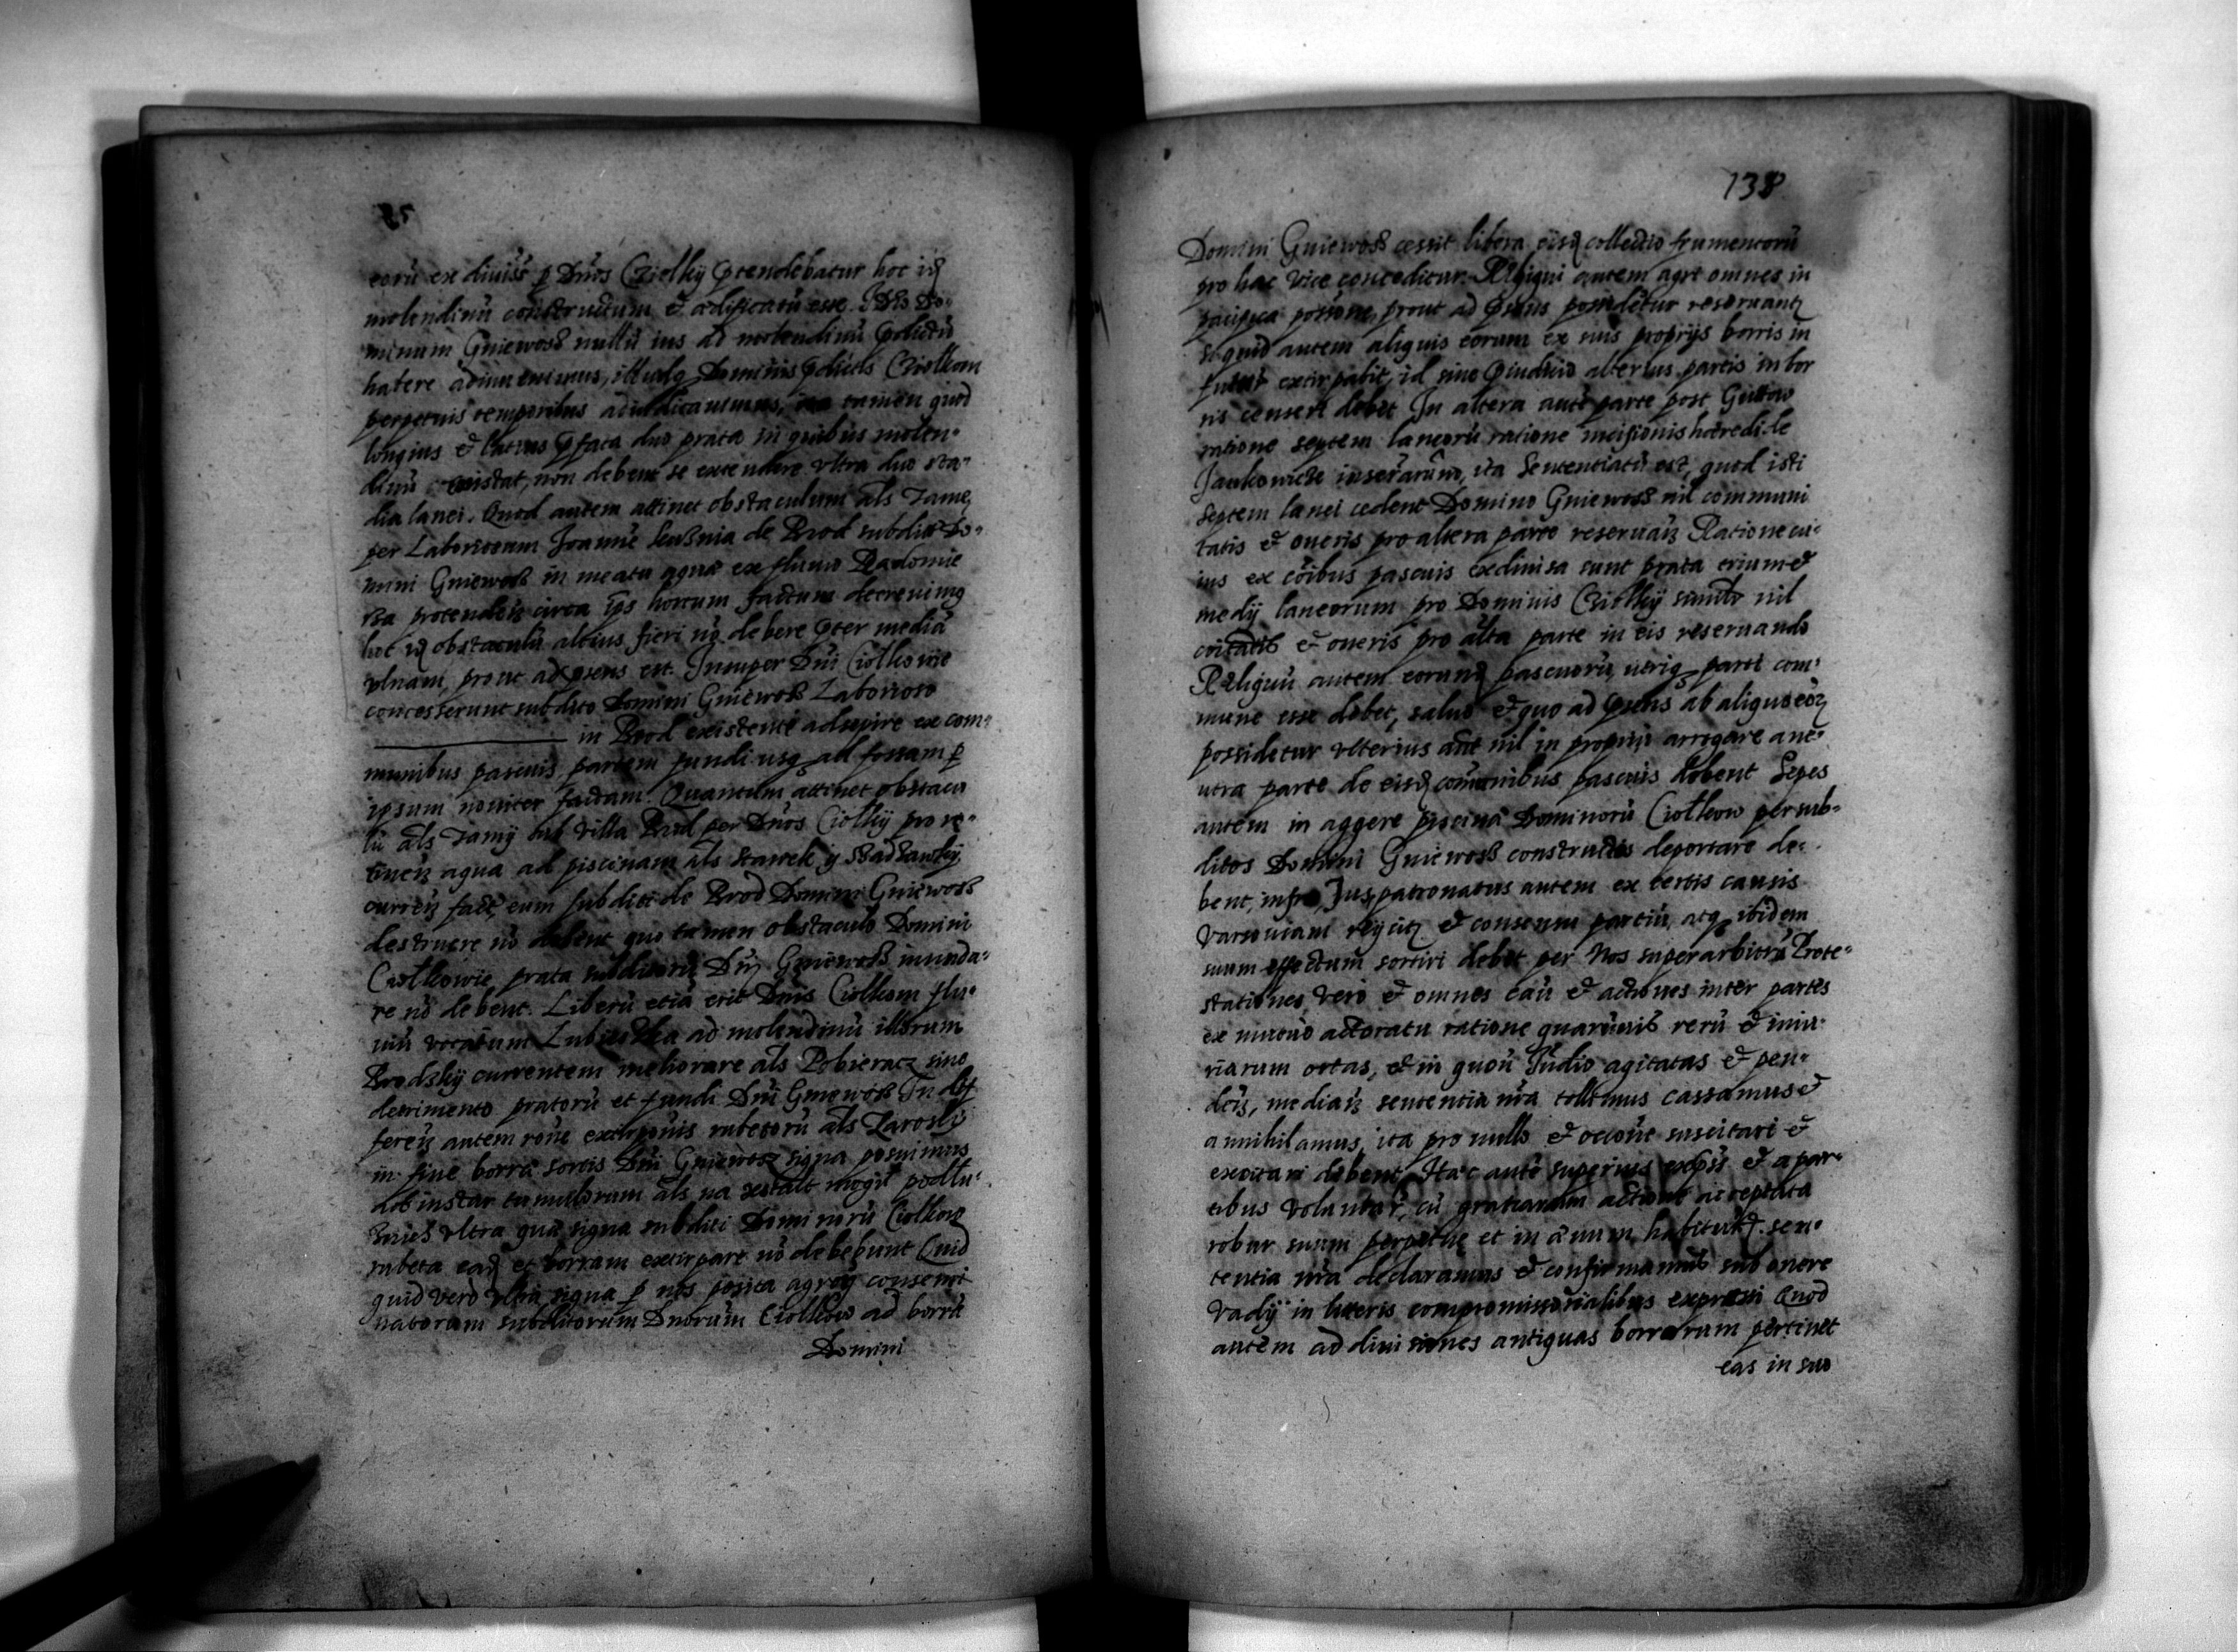 eorū ex diuisis ꝑ Dnos Cziołky ꝓtendebatur hoc idꝫ
molendinū constructum & ædificatū esse. Ideo Do-
minum Gniewosß nullū ius ad molendinū ꝓdictū
habere adinuenimus, illudꝗ Dominis ꝓdictis Cziołkom
perpetuis temporibus adiudicauimus, ita tamen quod
longius & latius ꝓfata duo prata in quibus molen-
dinū constat, non debent se extendere vltra duo sta-
dia lanei. Quod autem attinet obstaculum als Tamę
per Laboriosum Joannē de Brod subditū Do-
mini Gniewosß in meatu aquæ ex fluuio Radomie
rza protendeñ circa ip̄s hortum factum decreuimꝰ
hoc idꝫ obstaculū altius fieri nō debere ꝓter mediā
vlnam, prout ad ꝓsens est. Insuper Dni Ciołkowie
concesserunt subdito Domini Gniewosß Laborioso
in Brod existenti adsipire ex com-
munibus pascuis partem fundi usꝗ ad fossam ꝑ
ipsum nouiter factam. Quantum attinet obstacu
lū als Tamy sub villa Brod per Dnos Ciołky pro re-
tineñ aqua ad piscinam als stawek y Sadzawky
curreñ fact, eum subditi de Brod Domini Gniewosß
destruere nō debent quo tamen obstaculo Domini
Ciołkowie prata subditorū Dni Gniewosß inunda-
re nō debent. Liberū etiā erit Dnis Ciołkom flu-
uiū vocatum ad molendinū illorum
Brodsky currentem meliorare als Pobieracz sine
detrimento pratorū et fundi Dni Gniewosß In dif
fereñ autem rōne extirpōnis rubetorū als Zarosly
in fine borræ sortis Dni Gniewosz signa posuimus
ad instar tumulorum als na xstałt mogił podłu-
vltra quæ signa subditi Dominorū Ciołkow
rubeta eadꝫ et borram extirpare nō debebunt Quid
quid vero vltra signa ꝑ nos posita agroꝫ conseui
natorum subditorum Dnorum Ciołkow ad borrā
Domini
138
Domini Gniewosß cessit libera eisdꝫ collectio frumentorū
pro hac vice conceditur. Reliqui autem agri omnes in
pacifica possōne, prout ad ꝓsens possidetur reseruantꝫ
Siquid autem aliquis eorum ex suis proprijs borris in
futur extirpabit, id sine ꝓiudicio alterius partis in bor
ris censeri debet In altera autē parte post
ratione septem laneorū ratione incisionis hæredi de
Jankowicze inserarum, ita Sententiatū est, quod isti
septem lanei cedent Domino Gniewosß nil communi
tatis & oneris pro altera parte reseruañ Ratione cu-
ius ex cōibus pascuis exdiuisa sunt prata trium &
medij laneorum pro Dominis Cziołky simili nil
cōitatis & oneris pro alta parte in eis reseruando
Reliquū autem eorundꝫ pascuorū utriꝗ parti com-
mune esse debet, saluo & quo ad ꝓsens ab aliquo eorꝫ
possidetur vlterius aūt nil in propriū arrogare aut
utra parte de eisdꝫ com̄onibus pascuis debent Sepes
autem in aggere piscinæ Dominorū Ciołkow per sub-
ditos Domini Gniewosß constructas deportare de-
bent, infra Jus patronatus autem ex certis causis
Varsouiam reijcitꝫ & consensu partiū, atꝗ ibidem
suum effectum sortiri debet per Nos superarbitrū Prote-
stationes vero & omnes cau & actiones inter partes
ex mutuo actoratu ratione quarumuis rerū & iniu-
riarum ortas, et in quouī Judio agitatas & pen-
deñ, mediañ sententia nrā tollimus cassamus &
annihilamus, ita pro nullo & ociose suscitari &
excitari debent, Hæc autē superius exp̄ss & a par-
tibus voluntar, cū gratiarum actione acceptata
robur suum perpetuę et in æuum habitur sen-
tentia nra declaramus & confirmamus sub onere
Vadij in literis compromissorialibus expressi Quod
autem ad diuisiones antiquas borrarum pertinet
eas in suo